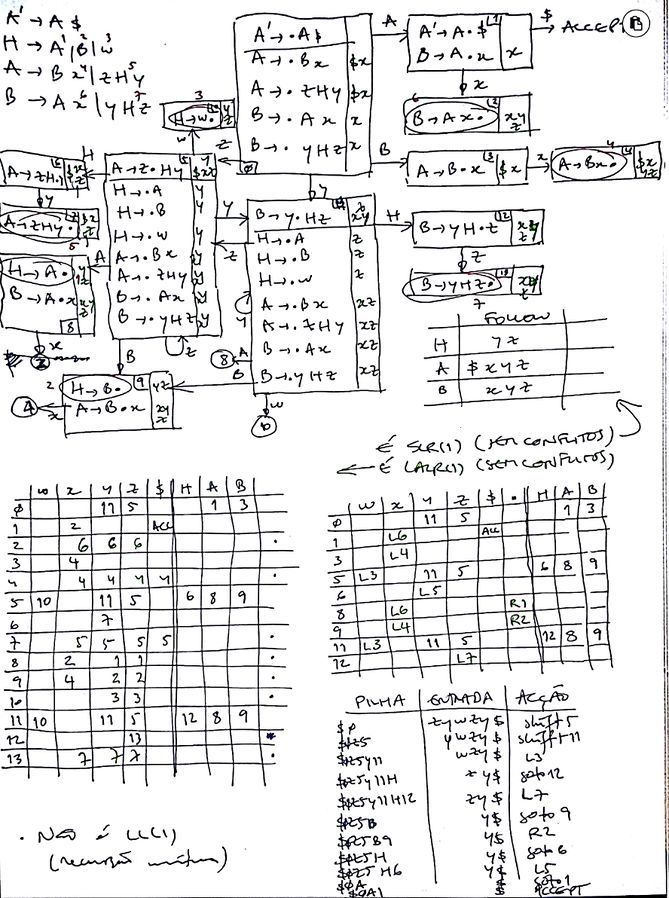 A' → A $
H → A¹|B²|w³
A → B x⁴|z H y⁵
B → A x⁶|y H z⁷
A' → · A $
A → · B x $x
A → · z H y $x
B → · A x x
B → · y H z x
A
A' → A · $ 1
B → A · x x
$
→ ACCEPT
B
x
6
B → A x · 2 xy z
B
A → B · x 3 $x
x
4
A → B x · 4
3
H → w ·
w
z
A → z · H y 5
H → · A y
H → · B y
H → · w y
A → · B x y
A → · z H y y
B → · A x y
B → · y H z y
z
H
A → z H · y 6
y
A → z H y · 7
5
A
H → A · y z
B → A · x
8
x
2
B
2
H → B · 9 yz
A → B · x xy z
4
x
y
z
y
B → y · H z
H → · A z
H → · B z
H → · w z
A → · B x xz
A → · z H y xz
B → · A x xz
B → · y H z xz
y
8 A
B
w
H
B → y H · z 12
z
B → y H z ·
7
FOLLOW
H y z
A $ x y z
B x y z
É SLR(1) (SEM CONFLITOS)
← É LALR(1) (SEM CONFLITOS)
w x y z $ H A B
0 11 5 1 3
1 2 ACC
2 6 6 6 ·
3 4
4 4 4 4 4 ·
5 10 11 5 6 8 9
6 7
7 5 5 5 5 ·
8 2 1 1 ·
9 4 2 2 ·
10 3 3 ·
11 10 11 5 12 8 9
12 13
13 7 7 7 ·
w x y z $ · H A B
0 11 5 1 3
1 L6 ACC
3 L4
5 L3 11 5 6 8 9
6 L5
8 L6 R1
9 L4 R2
11 L3 11 5 12 8 9
12 L7
PILHA ENTRADA ACÇÃO
$0 zywzy$ shift 5
$0z5 ywzy$ shift 11
$0z5y11 wzy$ L3
$0z5y11H zy$ goto 12
$0z5y11H12 zy$ L7
$0z5B y$ goto 9
$0z5B9 y$ R2
$0z5H y$ goto 6
$0z5H6 y$ L5
$0A $ goto 1
$0A1 $ ACCEPT
· NÃO É LL(1)
(recursão mútua)